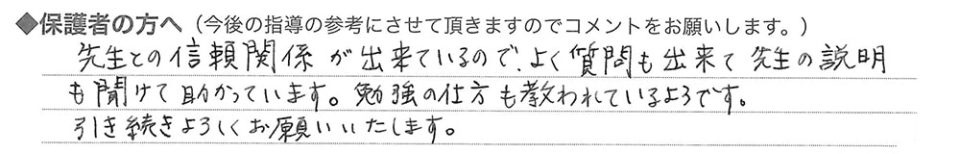 ◆保護者の方へ（今後の指導の参考にさせて頂きますのでコメントをお願いします。）
先生との信頼関係が出来ているので、よく質問も出来て先生の説明
も聞けて助かっています。勉強の仕方も教われているようです。
引き続きよろしくお願いいたします。